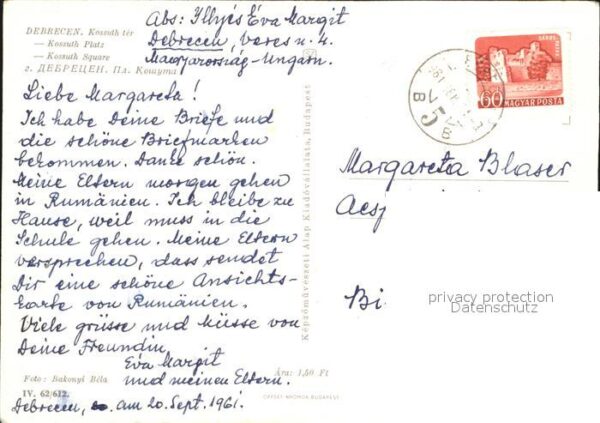 Abs: Illyés Éva Margit
Debrecen, Veres u. 4.
Magyarország - Ungarn.
DEBRECEN. Kossuth tér
— Kossuth Platz
— Kossuth Square
г. ДЕБРЕЦЕН. Пл. Кошута
Liebe Margareta!
Ich habe Deine Briefe und
die schöne Briefmarken
bekommen. Danke schön.
Meine Eltern morgen gehen
in Rumänien. Ich bleibe zu
Hause, weil muss in die
Schule gehen. Meine Eltern
versprechen, dass sendet
Dir eine schöne Ansichts-
karte von Rumänien.
Viele grüsse und Küsse von
Deine Freundin
Éva Margit
und meinen Eltern.
Foto: Bakonyi Béla
IV. 62/612.
Debrecen, am 20. Sept. 1961.
Ára: 1,50 Ft
OFFSET-NYOMDA BUDAPEST
Képzőművészeti Alap Kiadóvállalata, Budapest
60
MAGYAR POSTA
Margareta Blaser
Aesj
Bi
privacy protection
Datenschutz